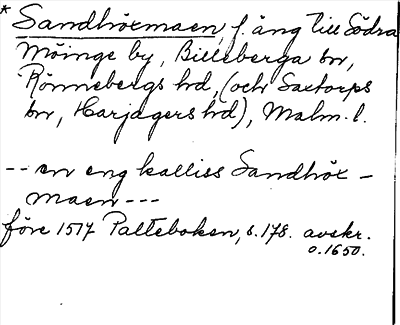 * Sandhöxmaen, f. äng till Södra
Möinge by, Billeberga sn,
Rönnebergs hd, (och Saxtorps
sn, Harjagers hd), Malm. l.
-- en eng kalliss Sandhöx -
maen ---
före 1517 Palteboken, s. 178. avskr.
o. 1650.